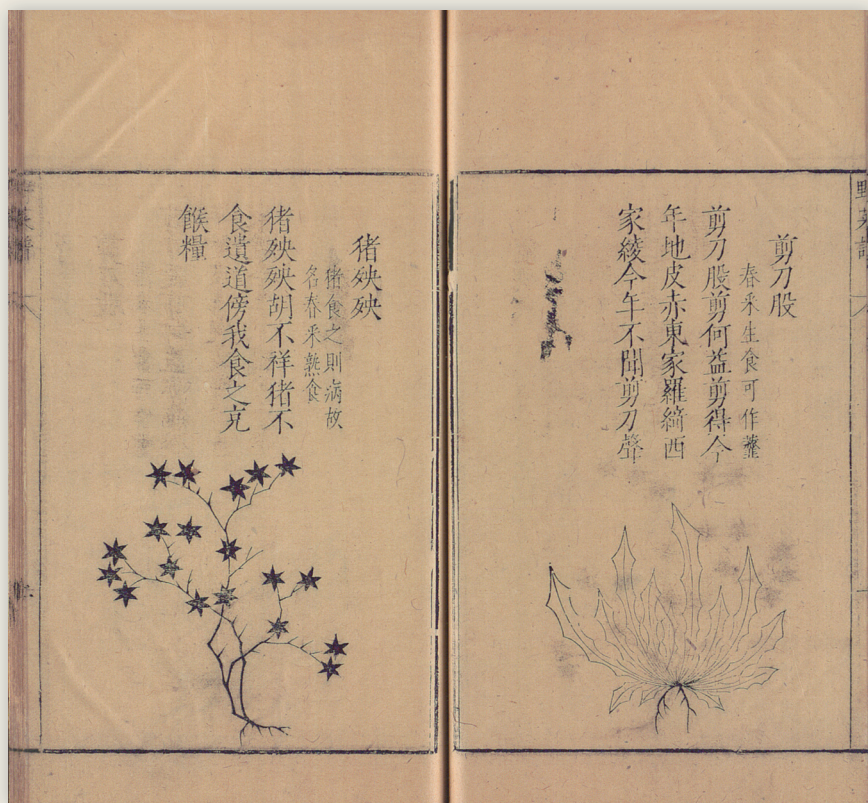 剪刀股
春采生食可作虀
剪刀股剪何益剪得今
年地皮赤東家羅綺西
家綾今年不聞剪刀聲
猪殃殃
猪食之則病故
名春采熟食
猪殃殃胡不祥猪不
食遺道傍我食之充
餱糧